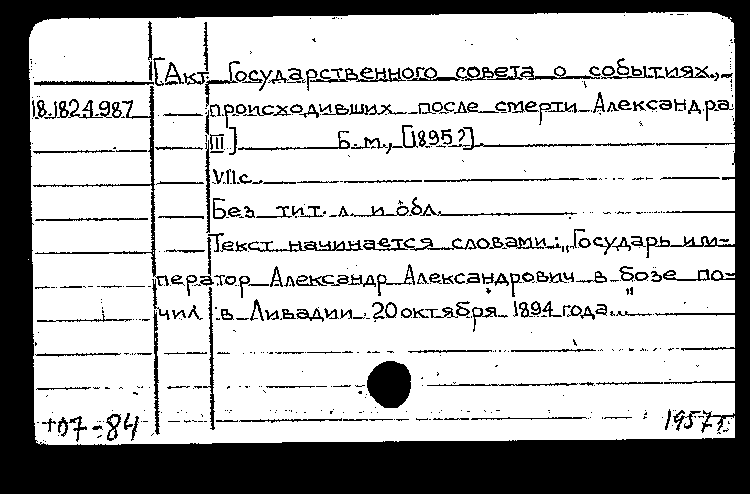 [Акт Государственного совета о событиях,
18.182.4.987 происходивших после смерти Александра
III] Б. м., [1895?].
VII с.
Без тит. л. и обл.
Текст начинается словами: „Государь им-
ператор Александр Александрович в бозе по-
чил в Ливадии 20 октября 1894 года..."
107-84 1957г